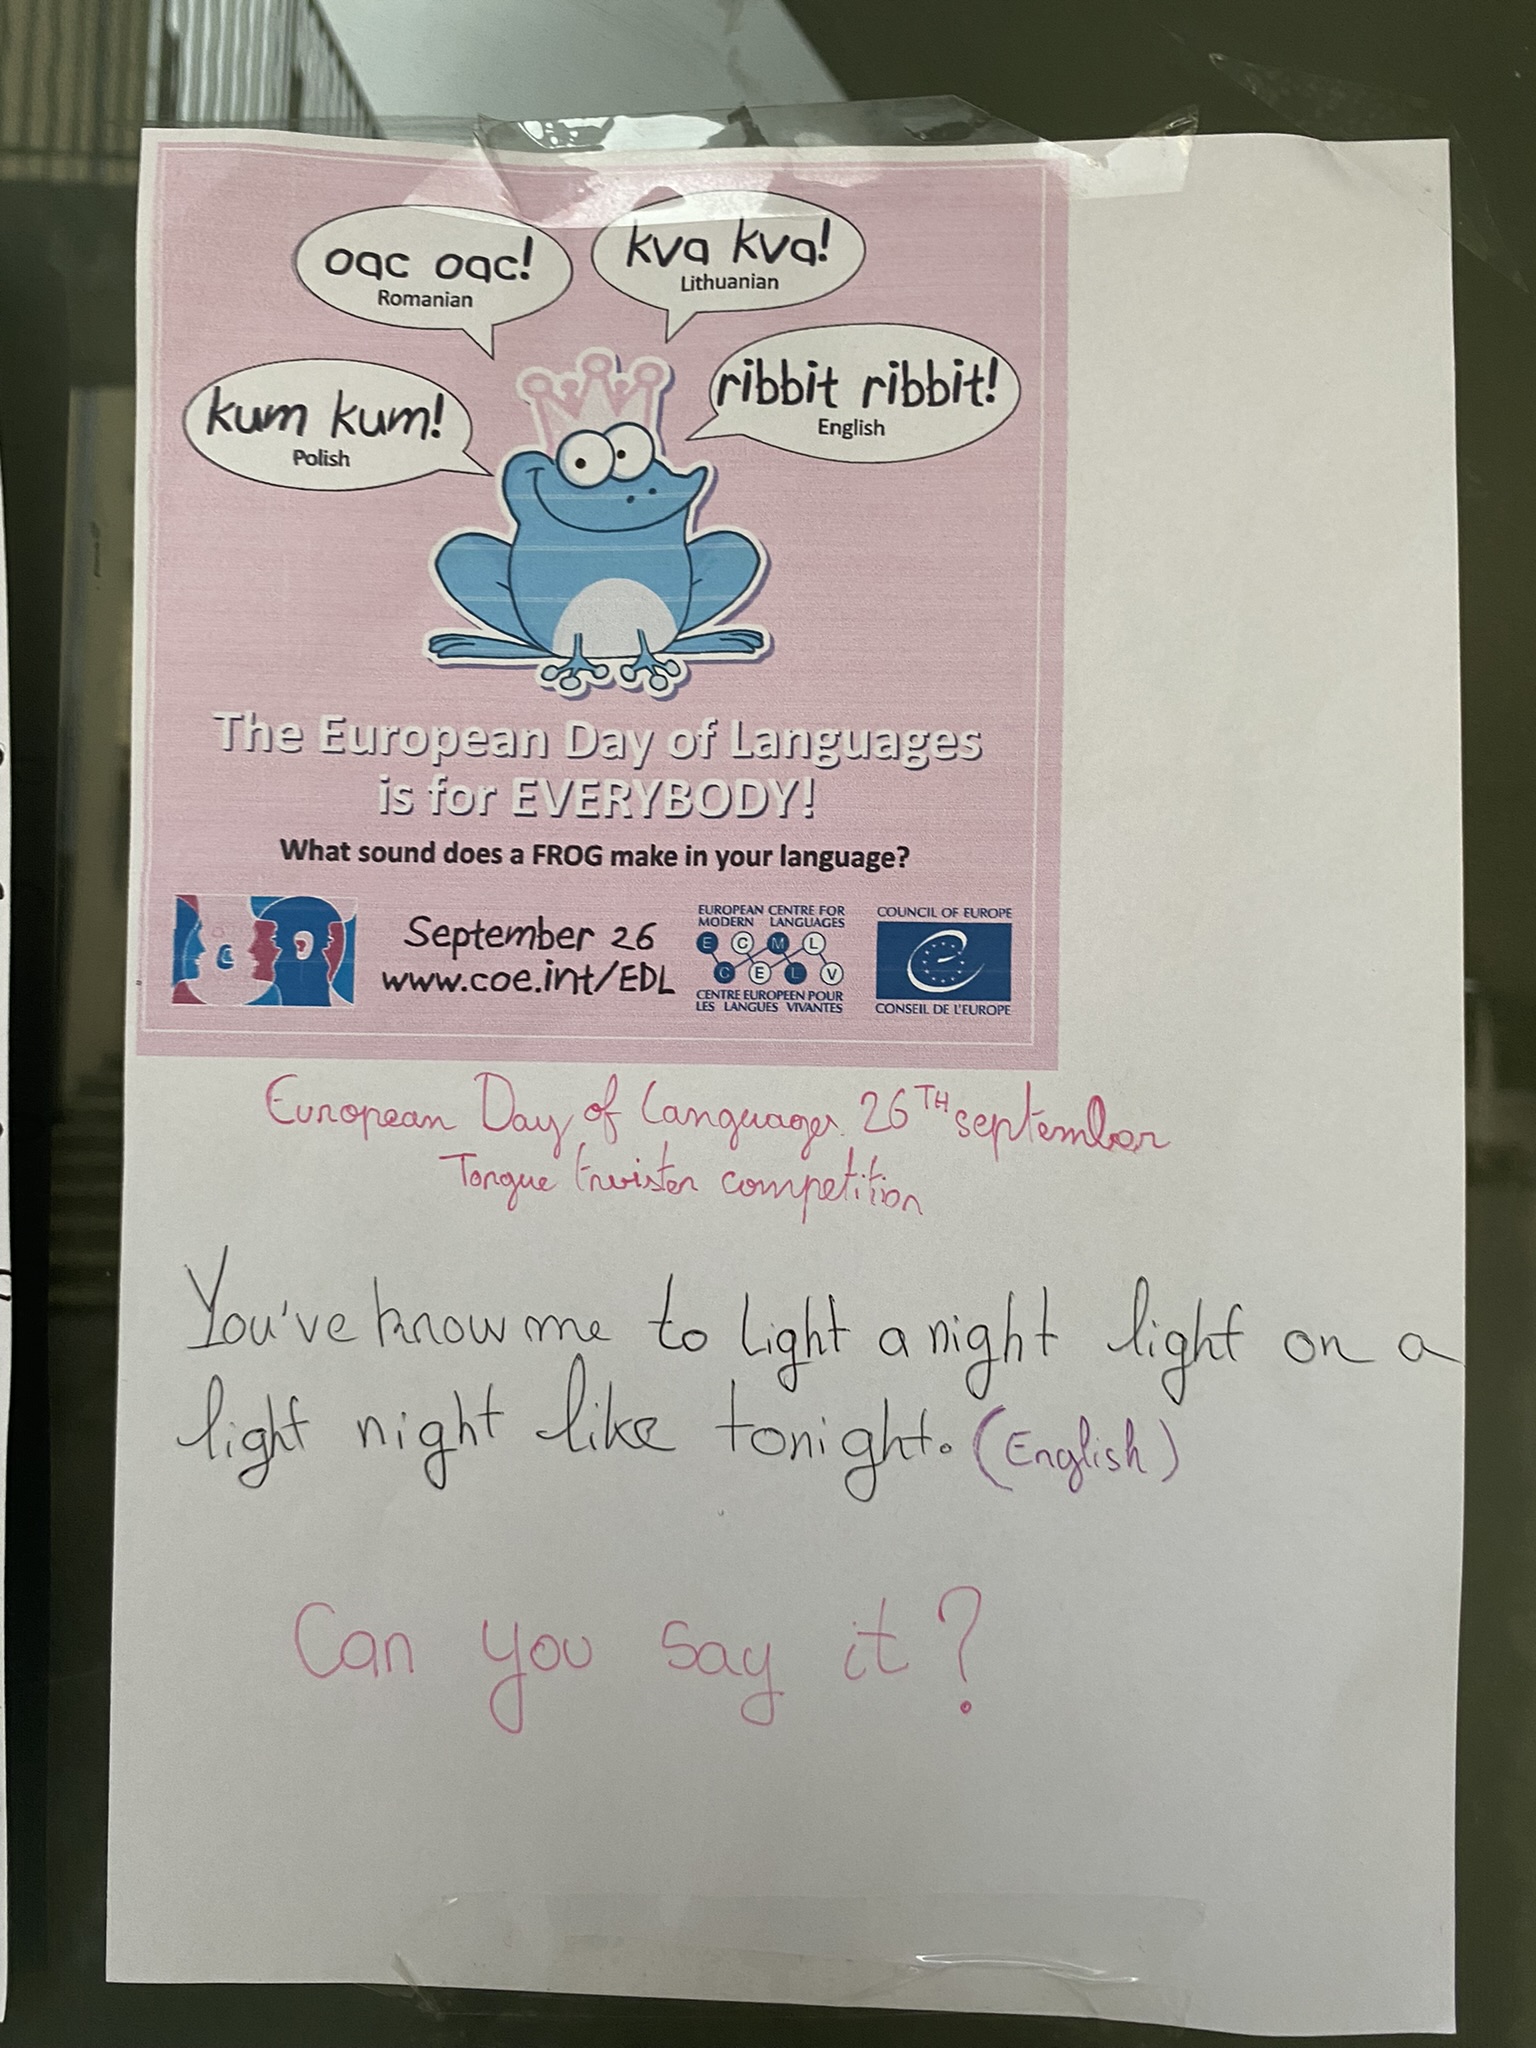 oac oac!
Romanian
kva kva!
Lithuanian
kum kum!
Polish
ribbit ribbit!
English
The European Day of Languages
is for EVERYBODY!
What sound does a FROG make in your language?
September 26
www.coe.int/EDL
EUROPEAN CENTRE FOR
MODERN LANGUAGES
E C M L
C E L V
CENTRE EUROPEEN POUR
LES LANGUES VIVANTES
COUNCIL OF EUROPE
CONSEIL DE L'EUROPE
European Day of Languages 26TH september
Tongue twister competition
You've know me to light a night light on a
light night like tonight. (English)
Can you say it?